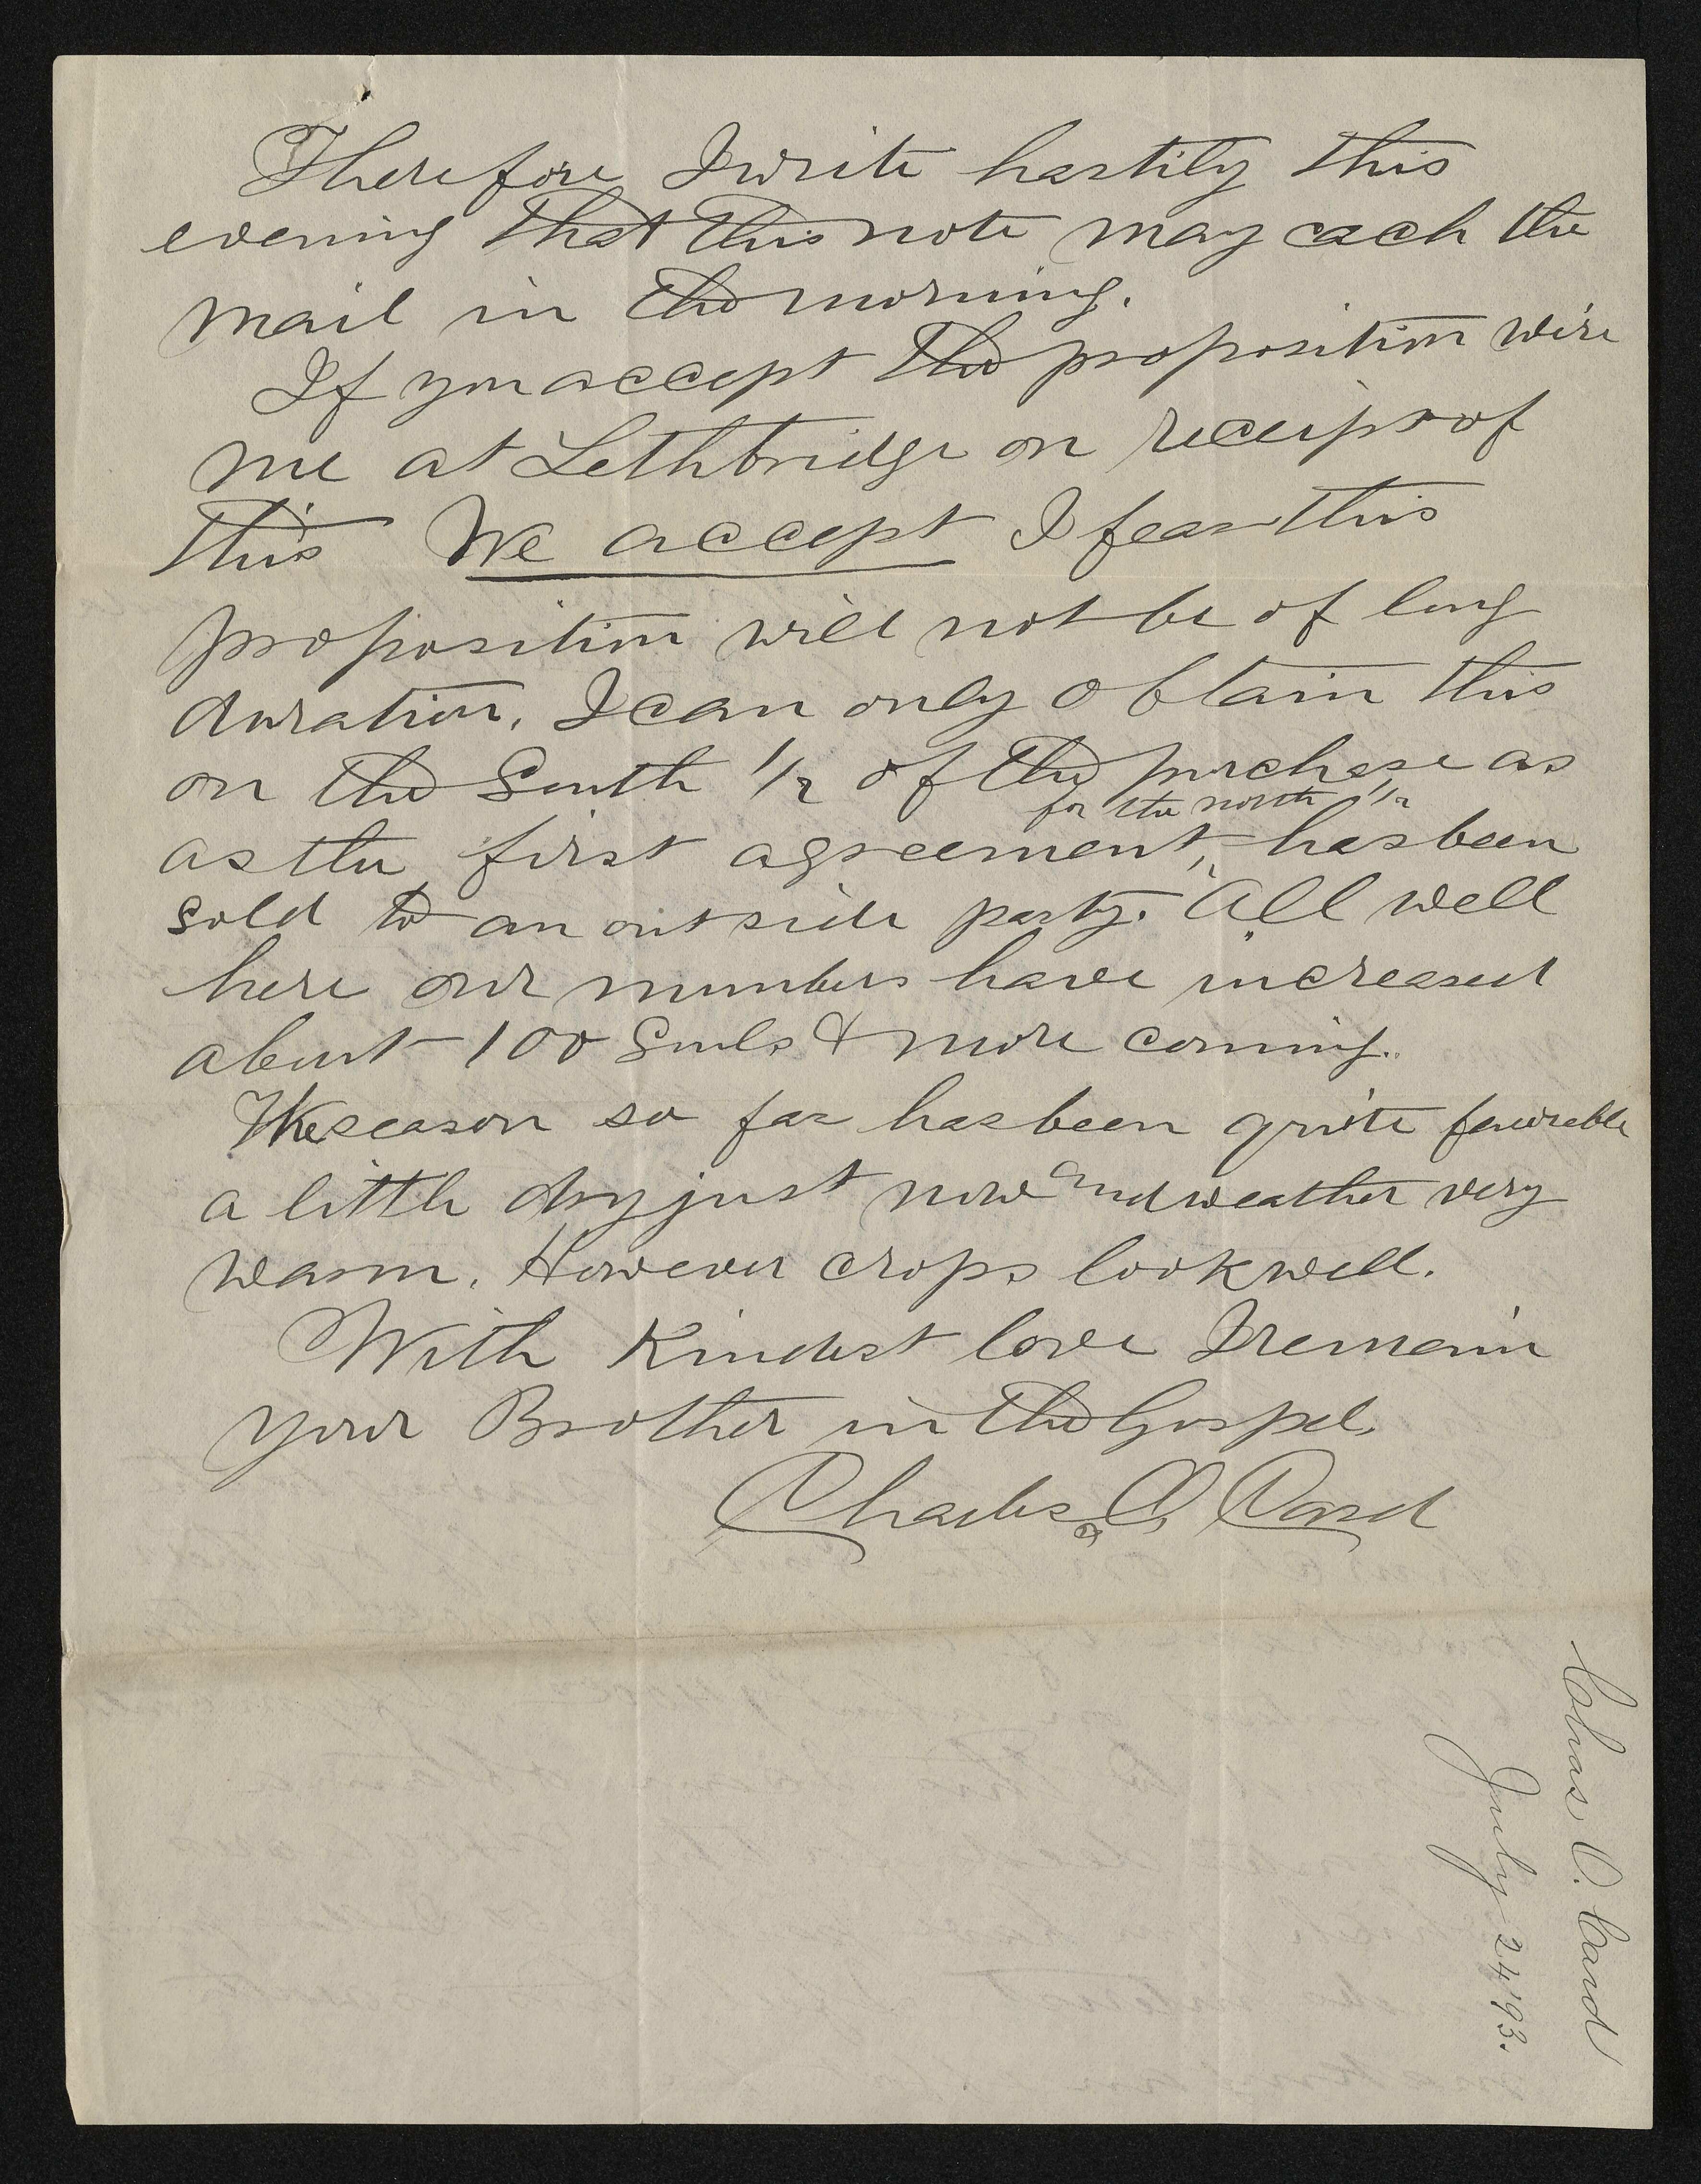 Therefore I write hastily this
evening that this note may cach the
mail in the morning.
If you accept the proposition wire
me at Lethbridge on receipt of
this We accept I fear this
proposition will not be of long
duration. I can only obtain this
on the South 1/2 of the purchase as
for the north 1/2
as the first agreement, has been
sold to an outside party. All well
here our numbers have increased
about 100 Souls & more coming.
The season so far has been quite favorable
a little dry just now and weather very
warm. However crops look well.
With Kindest love I remain
your Brother in the Gospel.
Charles O. Card
Chas. O. Card
July 24 '93.